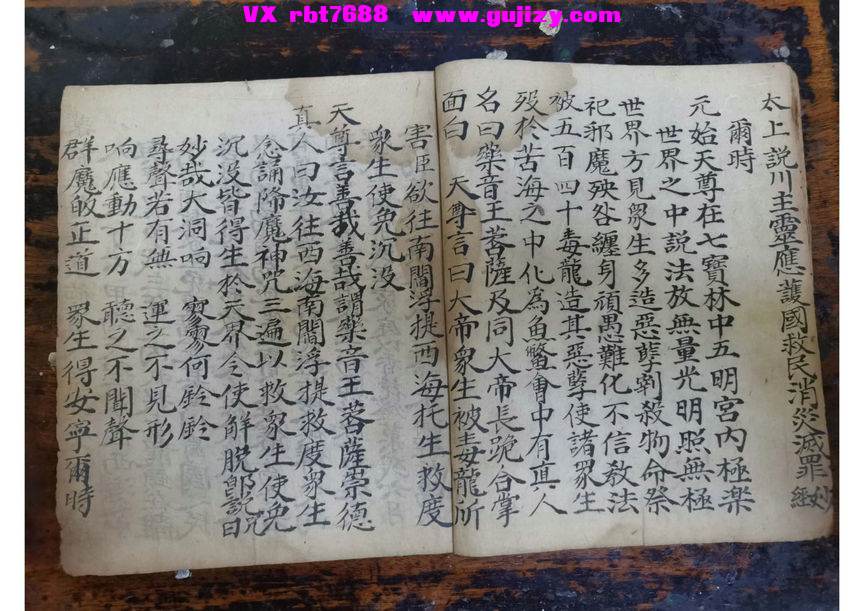 VX rbt7688 www.gujizy.com
太上説川主靈應護國救民消災滅罪妙經
爾時
元始天尊在七寶林中五明宮内極楽
世界之中説法放無量光明照無極
世界方見衆生多造惡孽宰殺物命祭
祀邪魔殃咎纏身頑愚難化不信教法
被五百四十毒龍造其惡孽使諸眾生
殁於苦海之中化為魚鱉會中有真人
名曰樂音王菩薩及同大帝長跪合掌
面白 天尊言曰大帝衆生被毒龍所
害臣欲往南閻浮提西海托生救度
衆生使免沉没
天尊言善哉善哉謂樂音王菩薩崇德
真人曰汝往西海南閻浮提救度衆生
念誦降魔神咒三遍以救衆生使免
沉没皆得生於天界令使解脱即説咒曰
妙哉大洞响 寥寥何鈴鈴
尋聲若有無 運之不見形
响應動十方 聽之不聞聲
群魔皈正道 眾生得安寧爾時